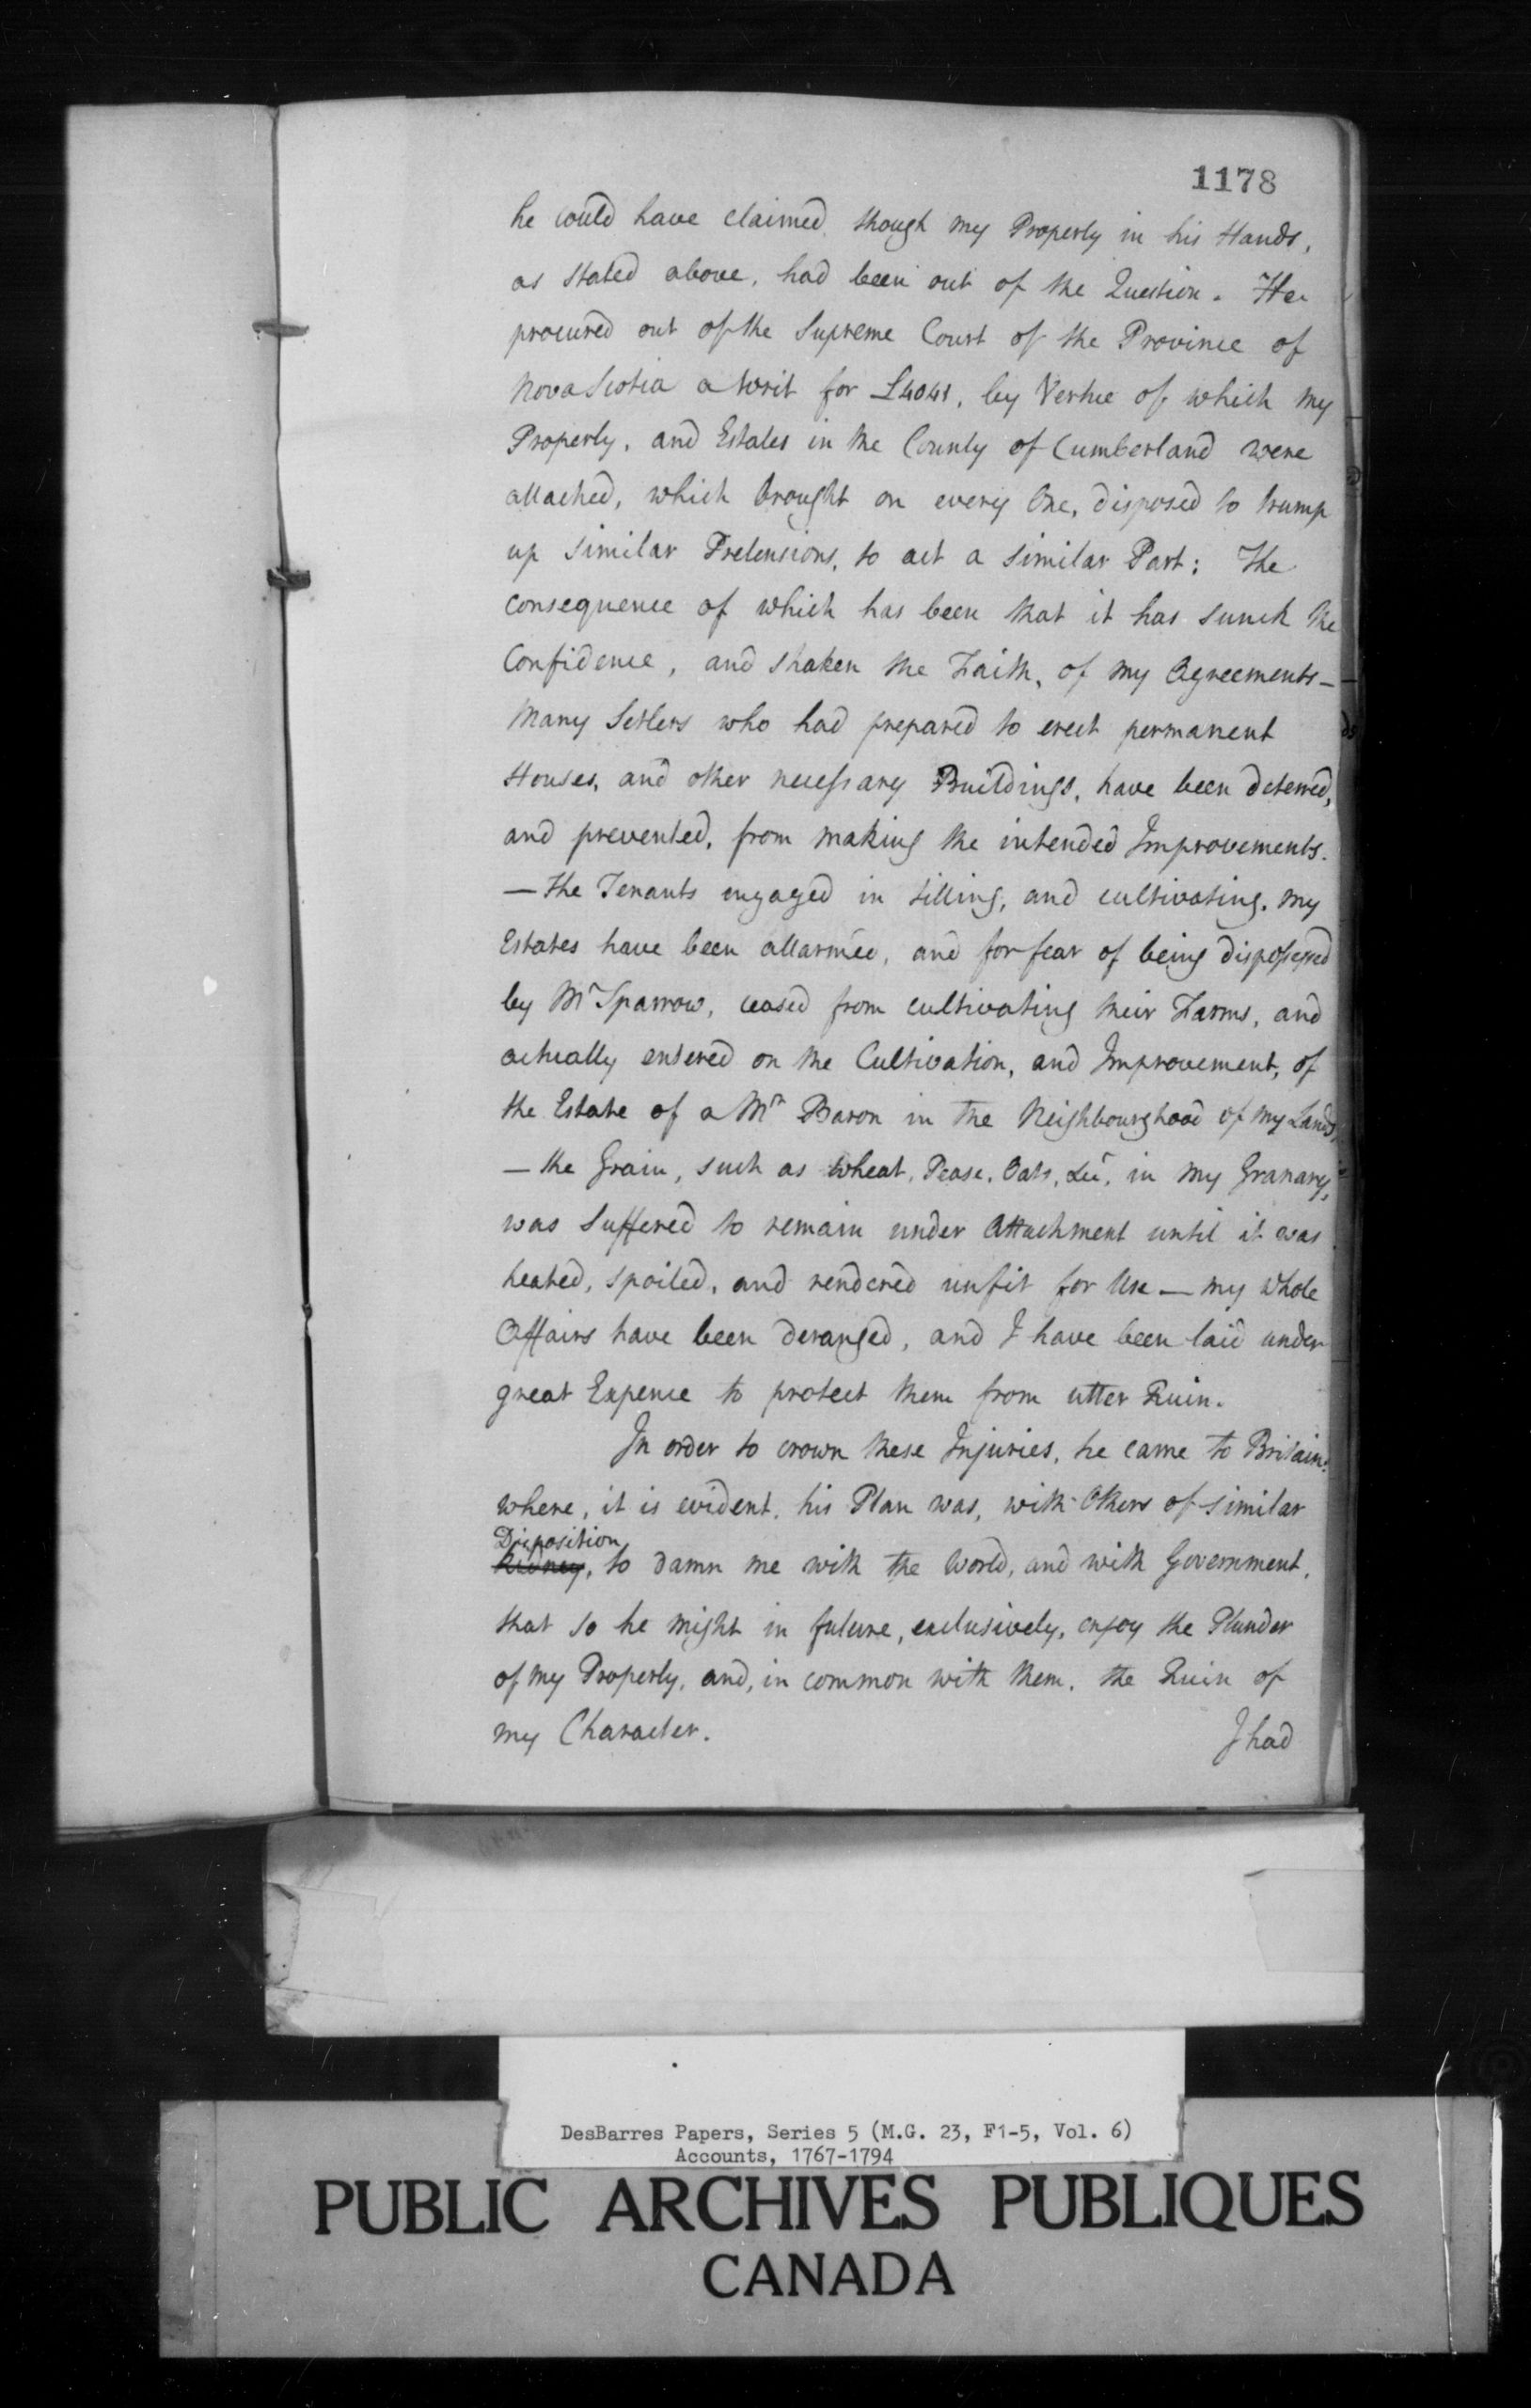 1178
he could have claimed, though my Property in his Hands,
as stated above, had been out of the Question. He
procured out of the Supreme Court of the Province of
Nova Scotia a Writ for £4041, by Vertue of which my
Property, and Estates in the County of Cumberland were
attached, which brought on every One, disposed to trump
up similar Pretensions, to act a similar Part; The
consequence of which has been that it has sunck the
Confidence, and shaken the Faith, of my Agreements —
Many Setlers who had prepared to erect permanent
Houses, and other necessary Buildings, have been deterred,
and prevented, from making the intended Improvements.
— The Tenants engaged in tilling, and cultivating, my
Estates have been allarmed, and for fear of being dispossessed
by Mr Sparrow, ceased from cultivating their Farms, and
actually entered on the Cultivation, and Improvement, of
the Estate of a Mr Baron in the Neighbourghood of my Lands
— the Grain, such as Wheat, Pease, Oats, &c, in my Granary,
was suffered to remain under Attachment until it was
heated, spoiled, and rendered unfit for Use — my whole
Affairs have been deranged, and I have been laid under
great Expence to protect them from utter Ruin.
In order to crown these Injuries, he came to Britain
where, it is evident, his Plan was, with Others of similar
Disposition
Kidney, to damn me with the World, and with Government,
that so he might in future, exclusively, enjoy the Plunder
of my Property, and, in common with them, the Ruin of
my Character.
I had
DesBarres Papers, Series 5 (M.G. 23, F1-5, Vol. 6)
Accounts, 1767-1794
PUBLIC ARCHIVES PUBLIQUES
CANADA